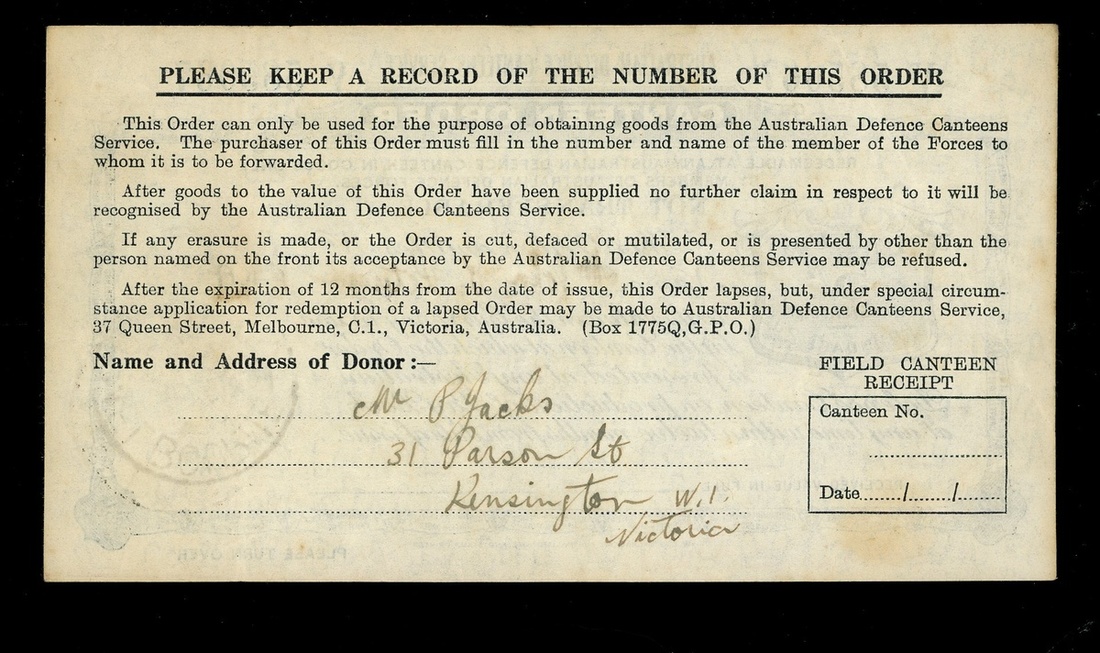 PLEASE KEEP A RECORD OF THE NUMBER OF THIS ORDER
This Order can only be used for the purpose of obtaining goods from the Australian Defence Canteens
Service. The purchaser of this Order must fill in the number and name of the member of the Forces to
whom it is to be forwarded.
After goods to the value of this Order have been supplied no further claim in respect to it will be
recognised by the Australian Defence Canteens Service.
If any erasure is made, or the Order is cut, defaced or mutilated, or is presented by other than the
person named on the front its acceptance by the Australian Defence Canteens Service may be refused.
After the expiration of 12 months from the date of issue, this Order lapses, but, under special circum-
stance application for redemption of a lapsed Order may be made to Australian Defence Canteens Service,
37 Queen Street, Melbourne, C.1., Victoria, Australia. (Box 1775Q,G.P.O.)
Name and Address of Donor :—
Mr P Jacks
31 Parson St
Kensington W.1.
Victoria
FIELD CANTEEN
RECEIPT
Canteen No.
Date / /
PLEASE TURN OVER